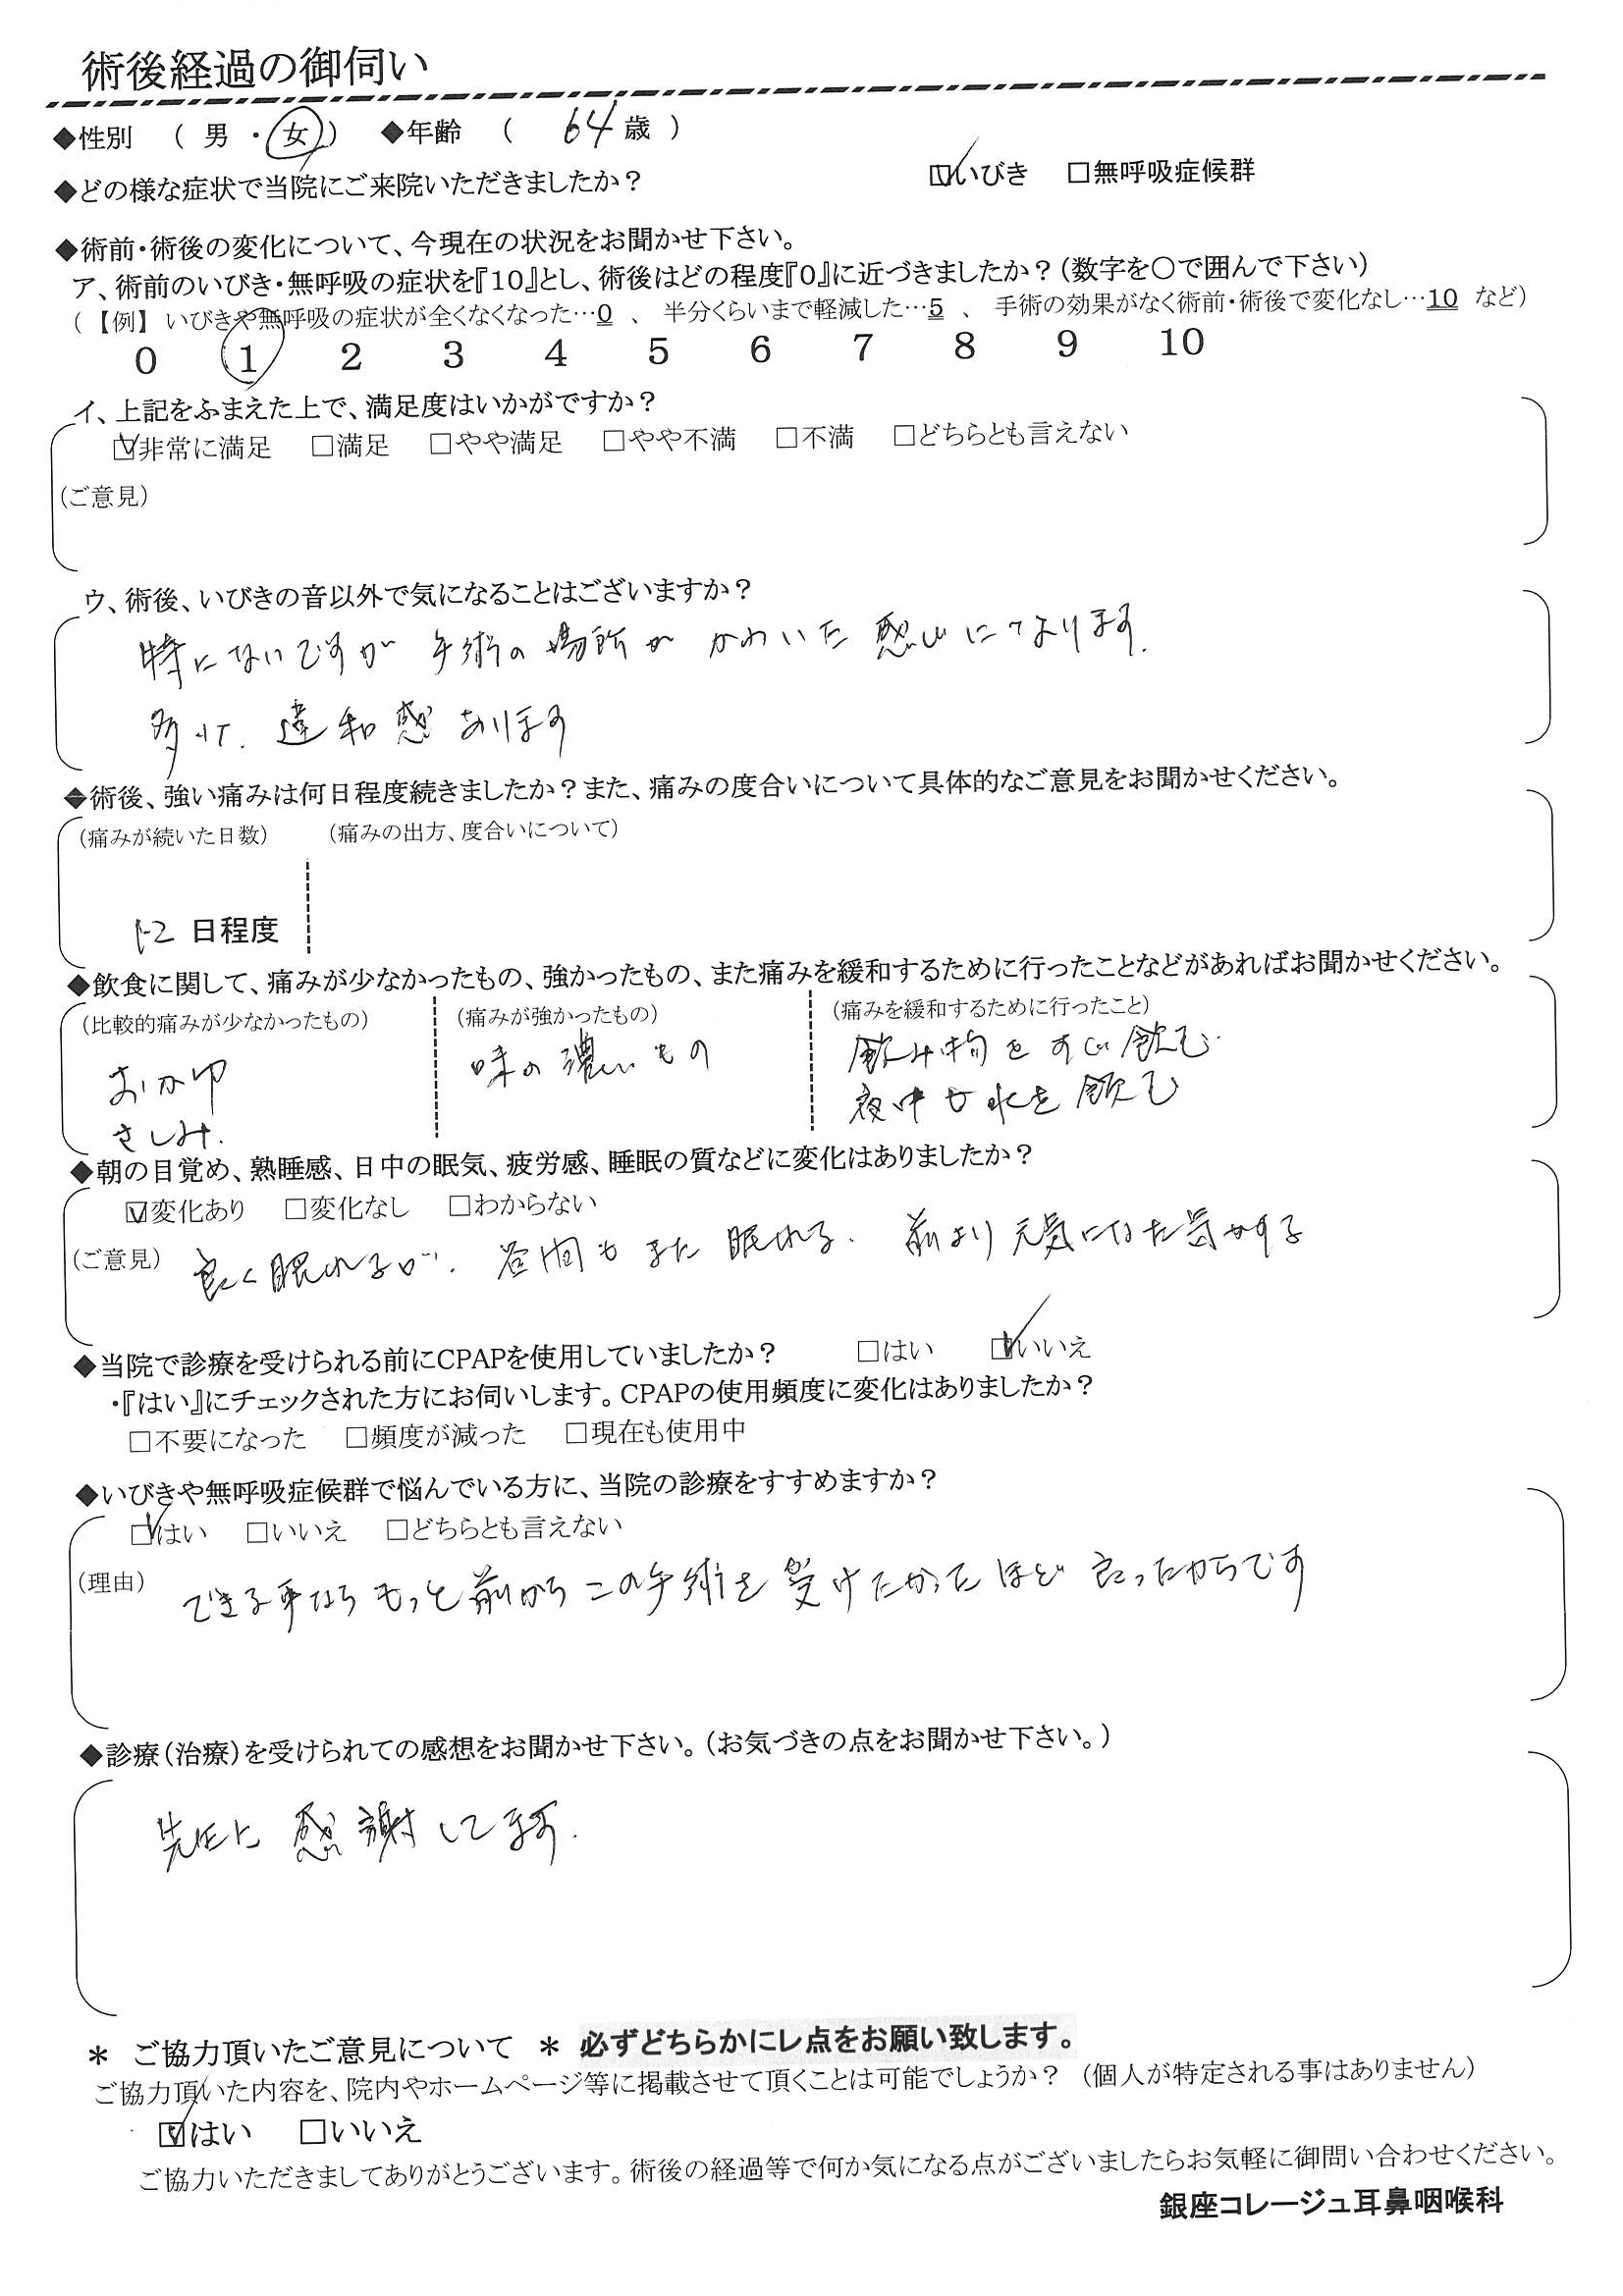 術後経過の御伺い
◆性別 （ 男 ・ 女 ） ◆年齢 （ 64 歳 ）
◆どの様な症状で当院にご来院いただきましたか？ ☑いびき □無呼吸症候群
◆術前・術後の変化について、今現在の状況をお聞かせ下さい。
ア、術前のいびき・無呼吸の症状を『10』とし、術後はどの程度『0』に近づきましたか？（数字を〇で囲んで下さい）
（ 【例】 いびきや無呼吸の症状が全くなくなった…0 、 半分くらいまで軽減した…5 、 手術の効果がなく術前・術後で変化なし…10 など）
0 1 2 3 4 5 6 7 8 9 10
イ、上記をふまえた上で、満足度はいかがですか？
☑非常に満足 □満足 □やや満足 □やや不満 □不満 □どちらとも言えない
（ご意見）
ウ、術後、いびきの音以外で気になることはございますか？
特にないですが 手術の場所が かわいた感じになります.
多少. 違和感あります
◆術後、強い痛みは何日程度続きましたか？また、痛みの度合いについて具体的なご意見をお聞かせください。
（痛みが続いた日数） （痛みの出方、度合いについて）
1-2 日程度
◆飲食に関して、痛みが少なかったもの、強かったもの、また痛みを緩和するために行ったことなどがあればお聞かせください。
（比較的痛みが少なかったもの） （痛みが強かったもの） （痛みを緩和するために行ったこと）
おかゆ 味の濃いもの 飲み物をすぐ飲む.
さしみ. 夜中も水を飲む
◆朝の目覚め、熟睡感、日中の眠気、疲労感、睡眠の質などに変化はありましたか？
☑変化あり □変化なし □わからない
（ご意見） 良く眠れるが. 昼間もまた眠れる. 前より元気になった気がする
◆当院で診療を受けられる前にCPAPを使用していましたか？ □はい ☑いいえ
・『はい』にチェックされた方にお伺いします。CPAPの使用頻度に変化はありましたか？
□不要になった □頻度が減った □現在も使用中
◆いびきや無呼吸症候群で悩んでいる方に、当院の診療をすすめますか？
☑はい □いいえ □どちらとも言えない
（理由） できる事なら もっと前からこの手術を受けたかったほど 良ったからです
◆診療（治療）を受けられての感想をお聞かせ下さい。（お気づきの点をお聞かせ下さい。）
先生に 感謝してます.
＊ ご協力頂いたご意見について ＊ 必ずどちらかにレ点をお願い致します。
ご協力頂いた内容を、院内やホームページ等に掲載させて頂くことは可能でしょうか？ （個人が特定される事はありません）
☑はい □いいえ
ご協力いただきましてありがとうございます。術後の経過等で何か気になる点がございましたらお気軽に御問い合わせください。
銀座コレージュ耳鼻咽喉科